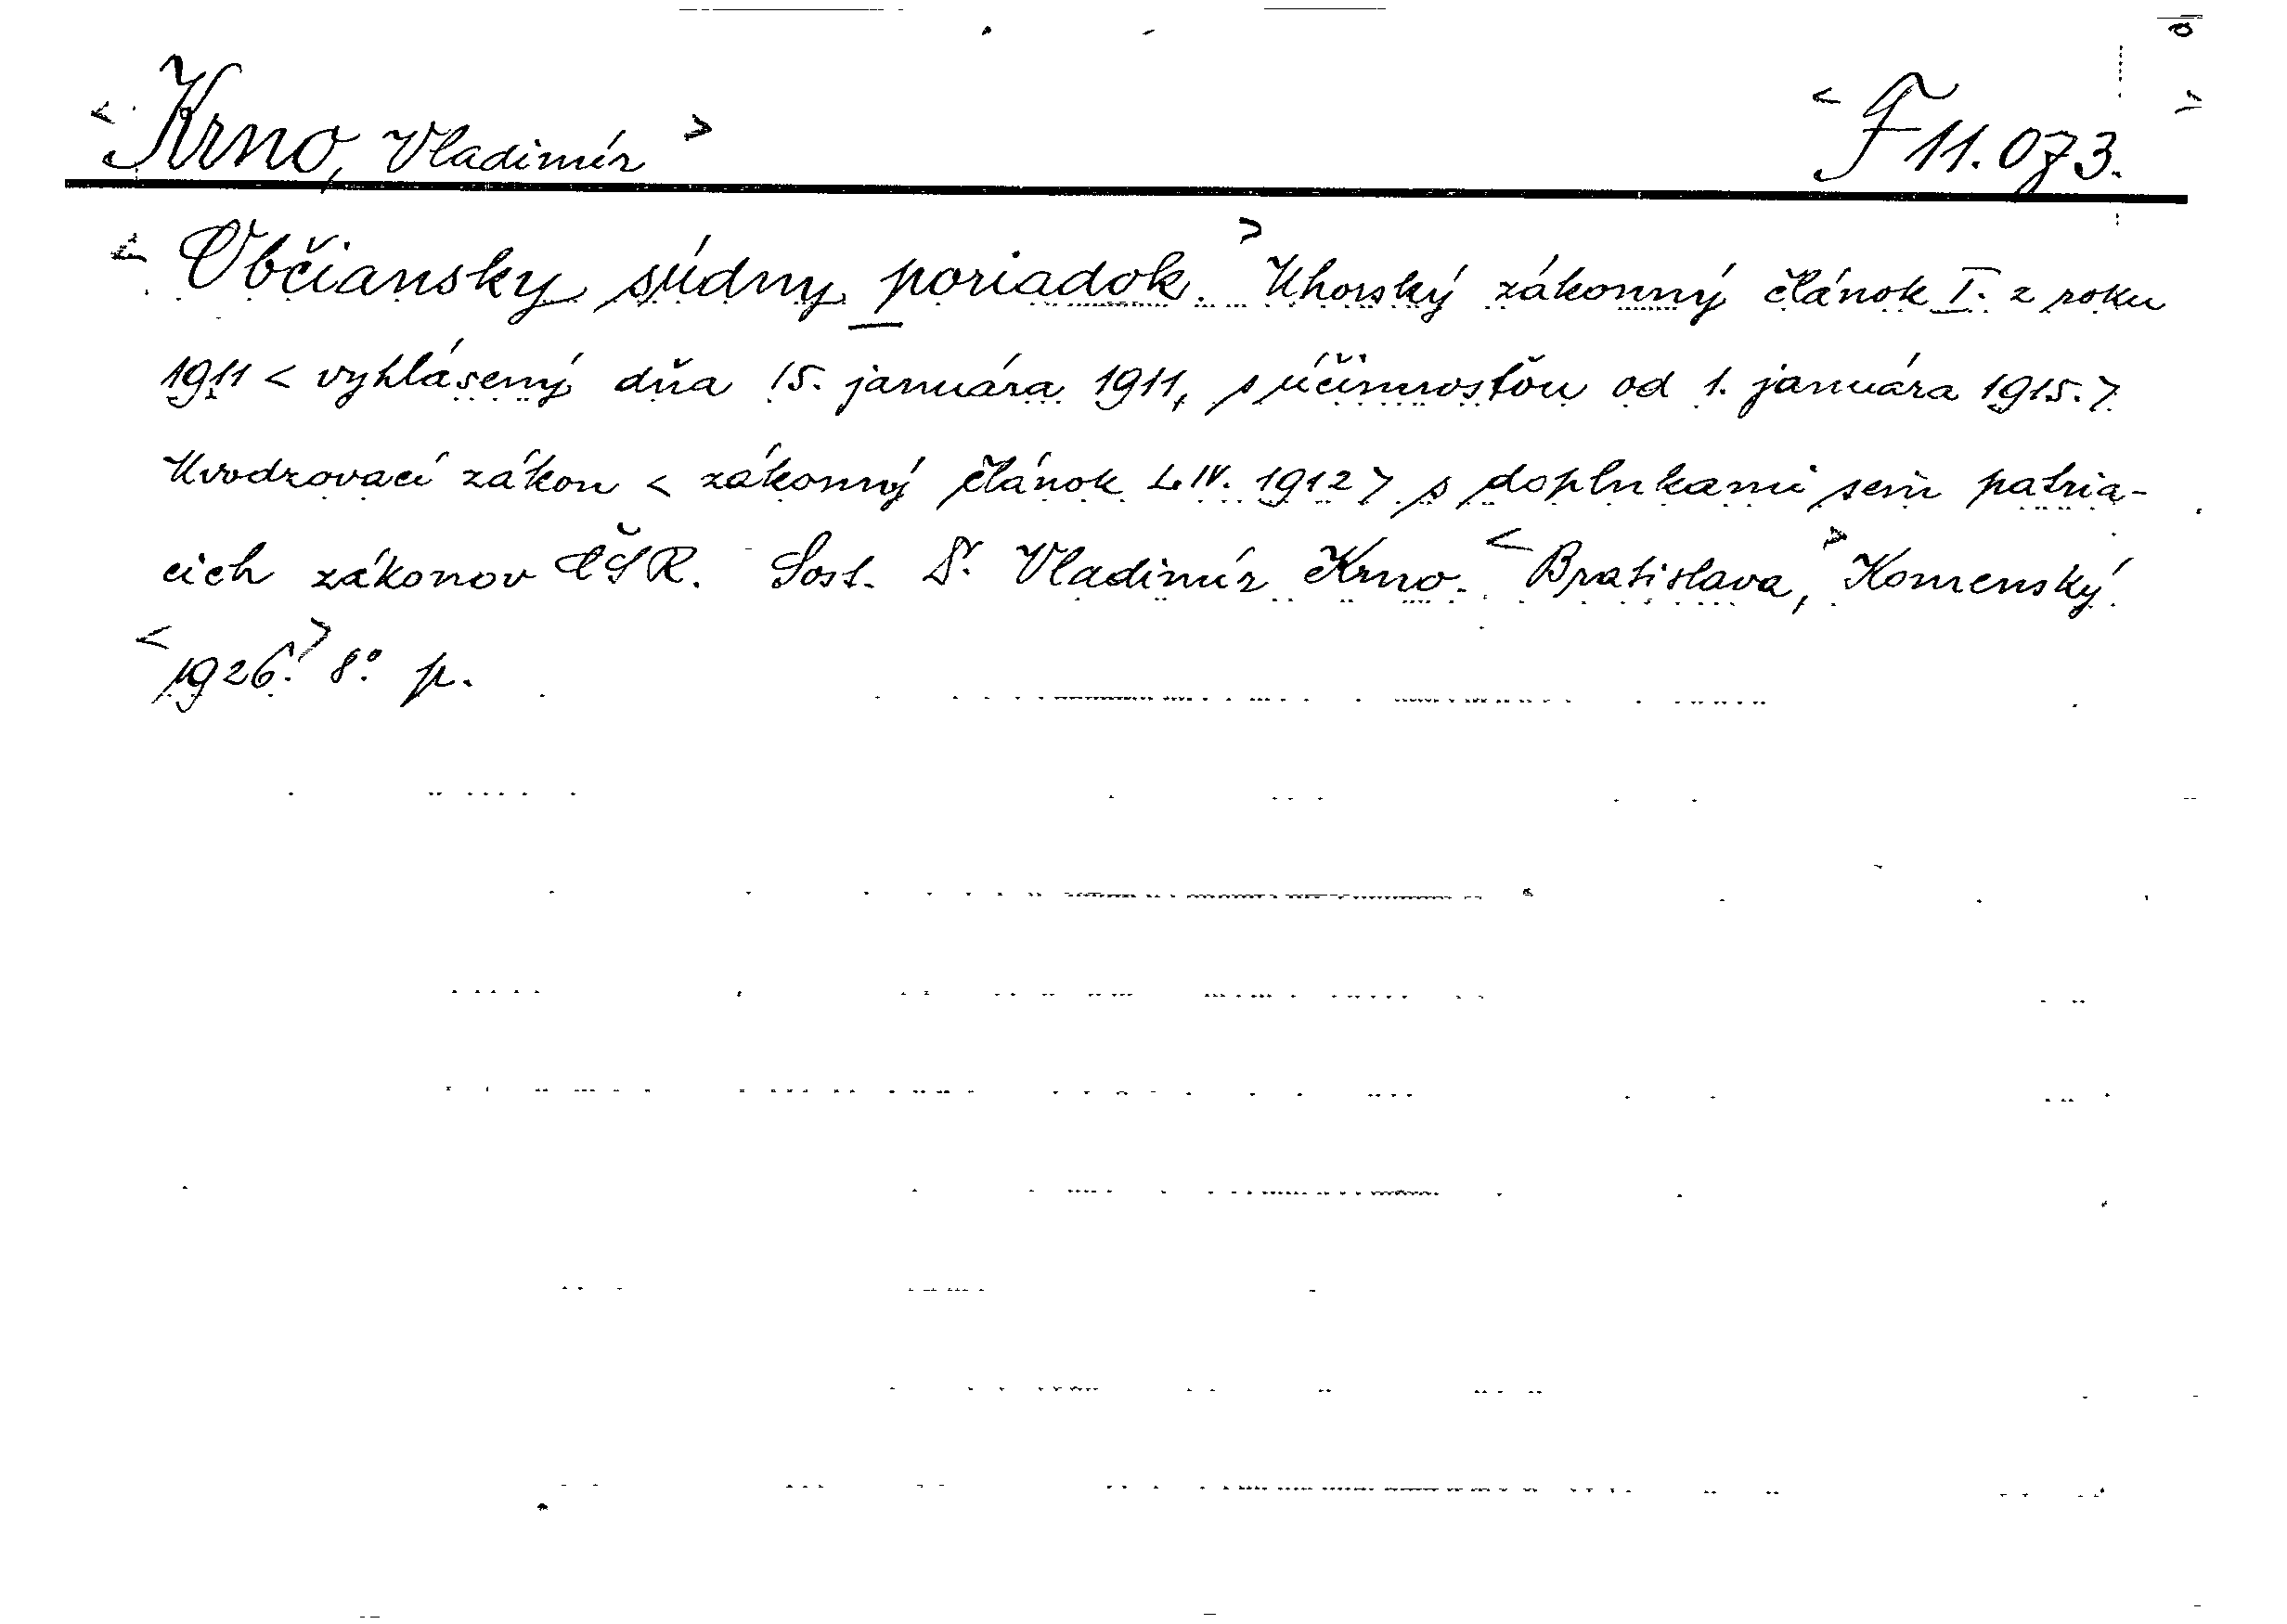 < Krno, Vladimír > < F 11.073. >
< Občiansky súdny poriadok. > Uhorský zákonný článok I. z roku
1911 < vyhlásený dňa 15. januára 1911, s účinnosťou od 1. januára 1915. >
Uvodzovací zákon < zákonný článok LIV. 1912 > s doplnkami sem patria-
cich zákonov ČSR. Sost. Dr. Vladimír Krno. < Bratislava, > Komenský
< 1926. > 8° p.